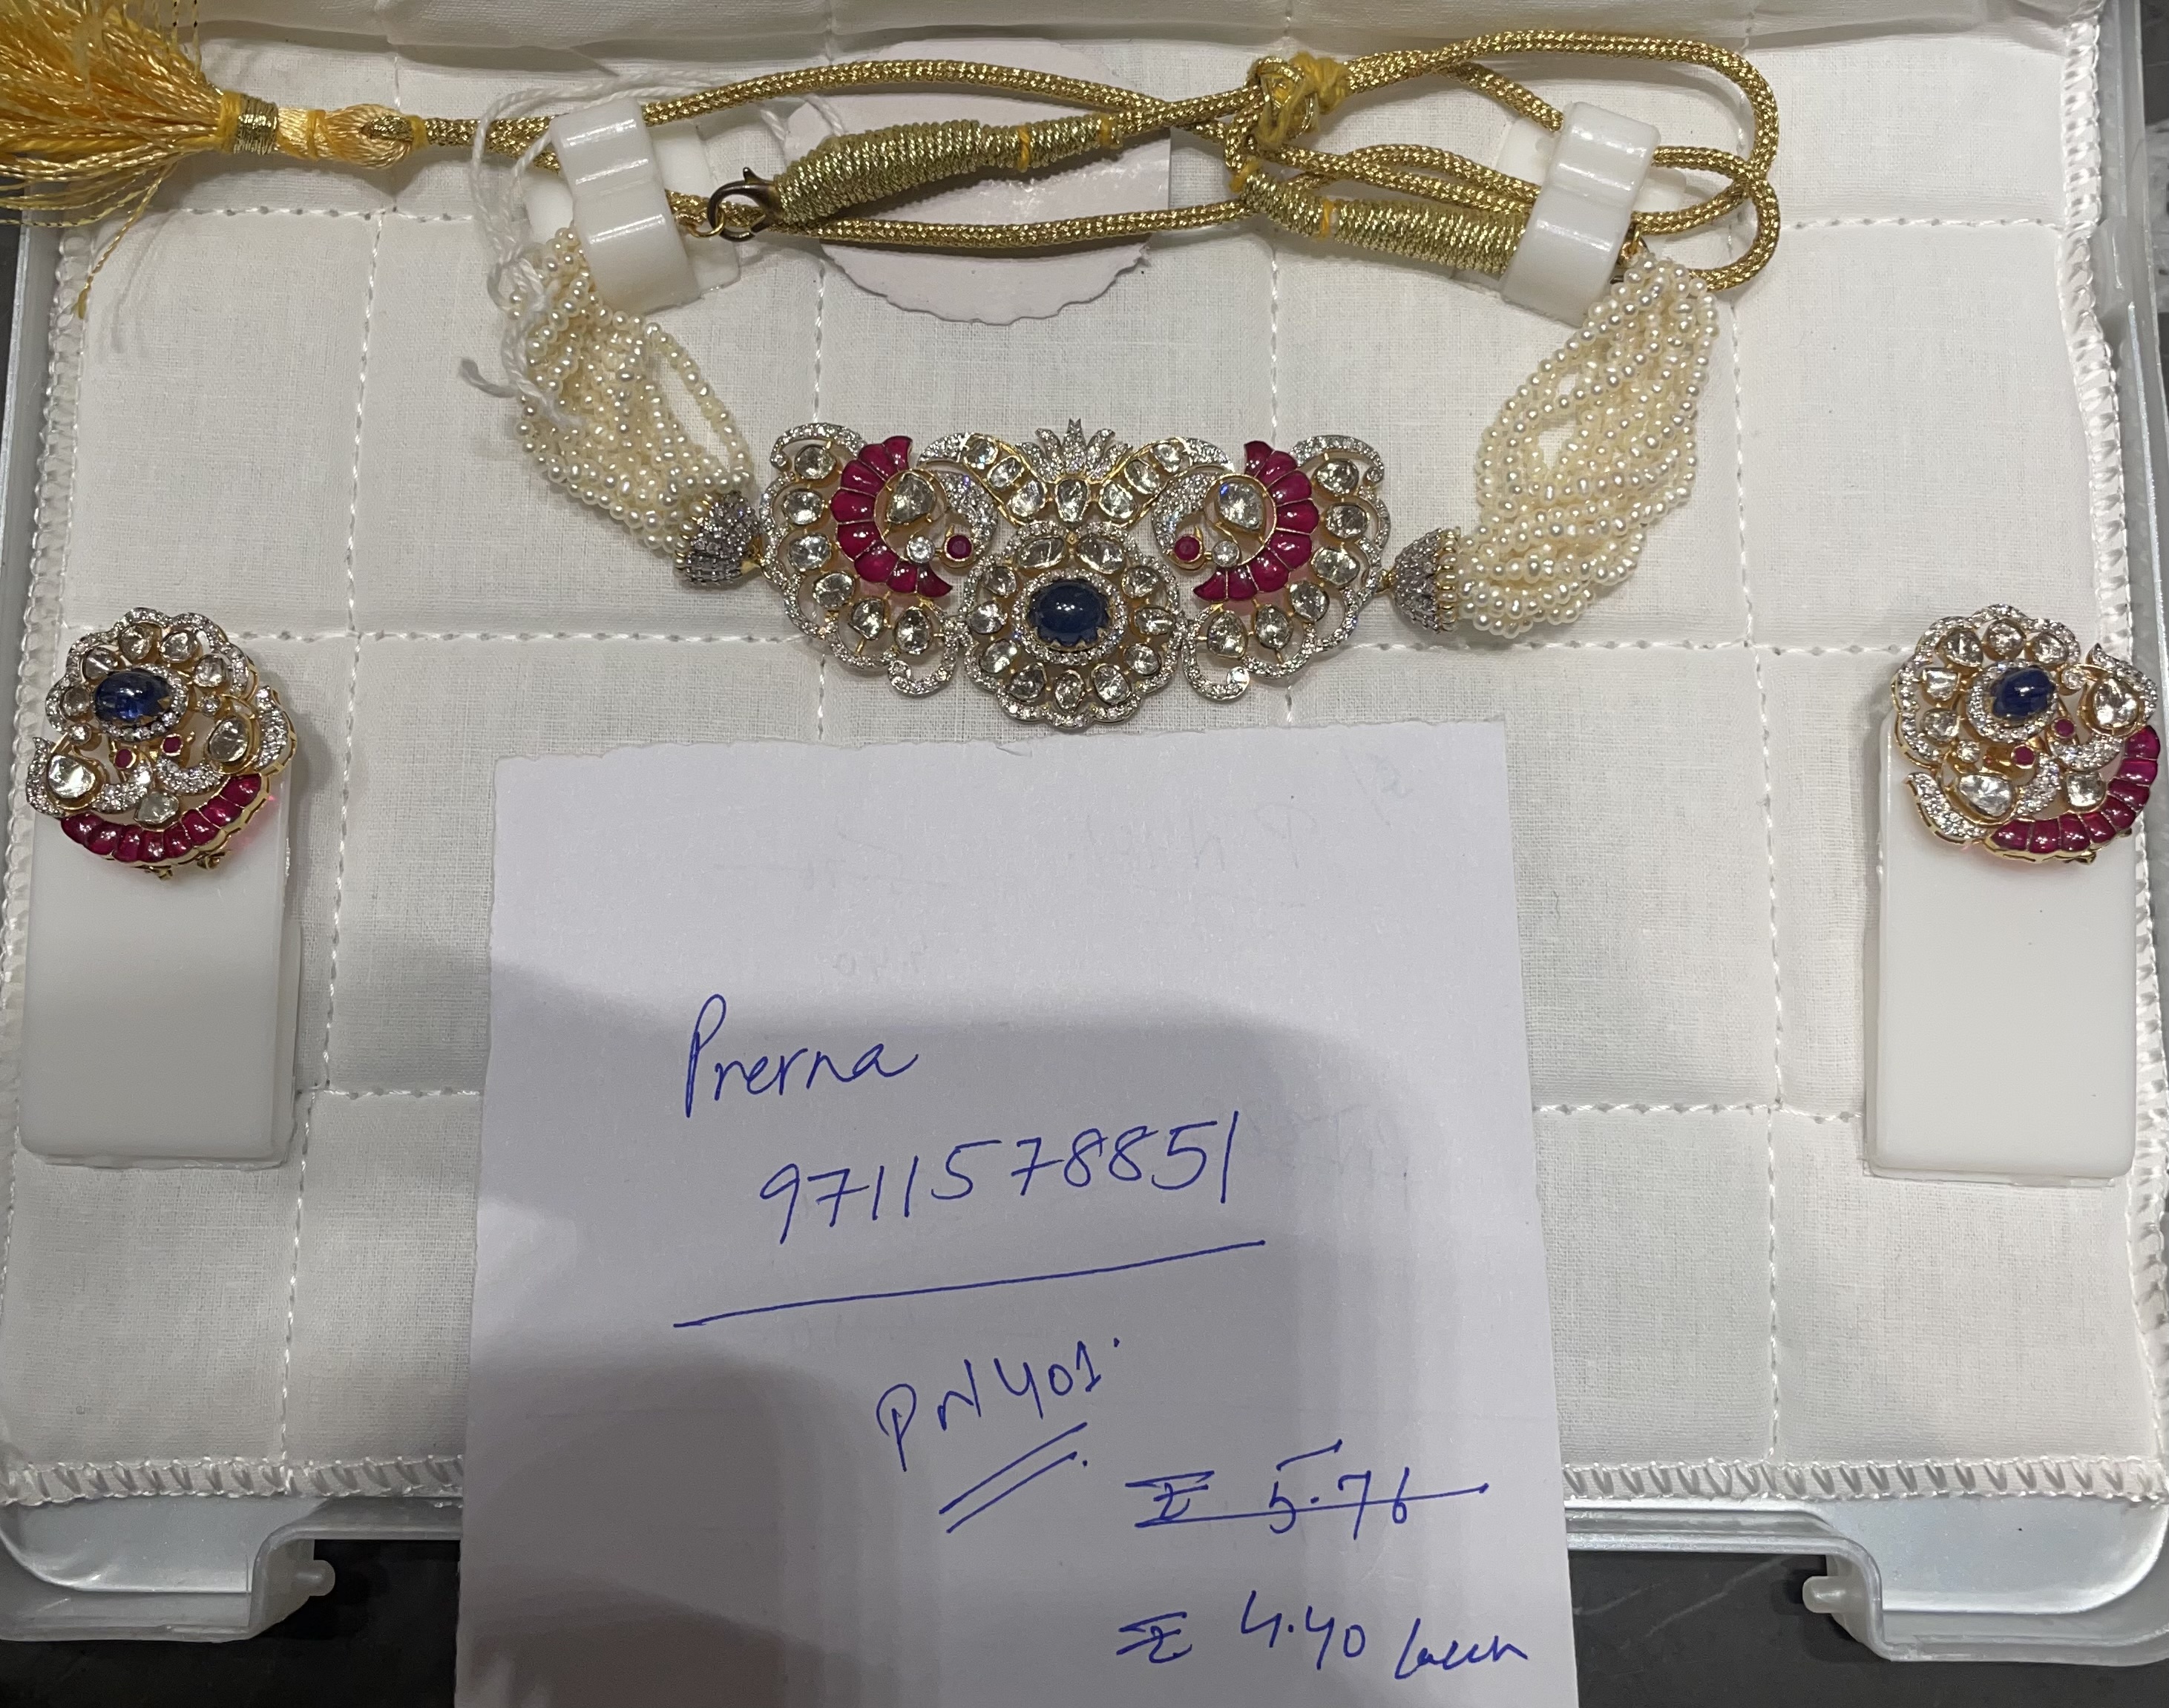 Prerna
9711578851
PN401.
₹ 5.76
₹ 4.40 lacs